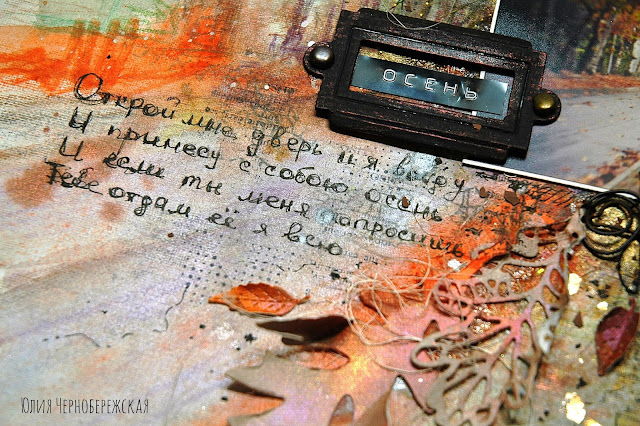 ОСЕНЬ
Открой мне дверь и я войду
И принесу с собою осень
И если ты меня попросишь
Тебе отдам её я всю
Юлия Чернобережская